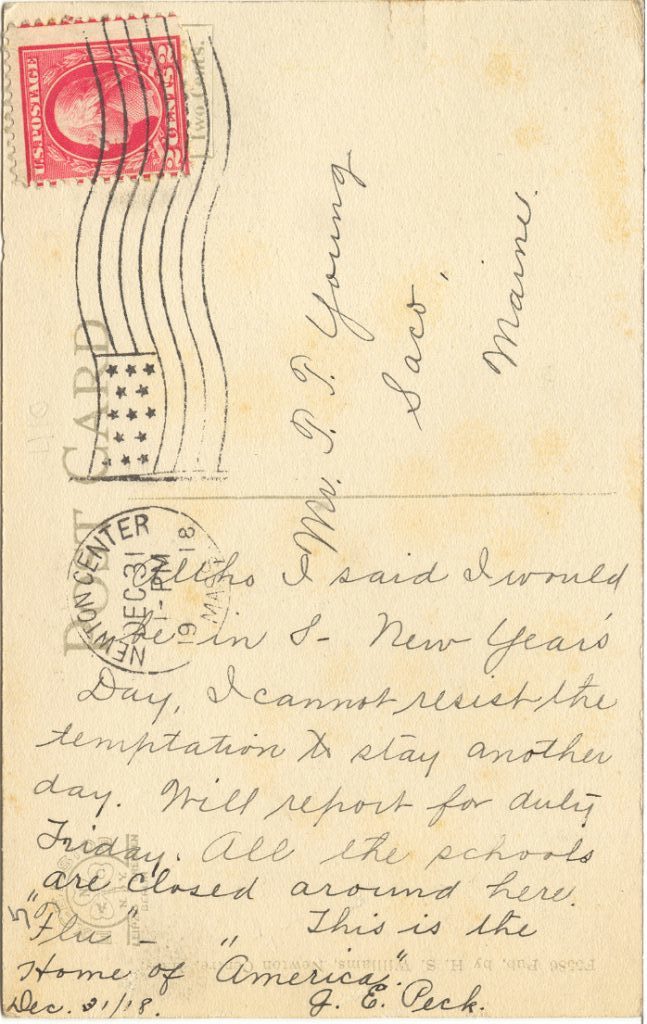 U.S. POSTAGE
2 CENTS 2
Two Cents.
POST CARD
NEWTON CENTER
DEC 31
1-PM
19 18
MASS.
Mr. P. T. Young
Saco,
Maine.
Altho I said I would
be in S- New Year's
Day, I cannot resist the
temptation to stay another
day. Will report for duty
Friday. All the schools
are closed around here.
"Flu" - This is the
Home of "America".
Dec. 31/18. J. E. Peck.